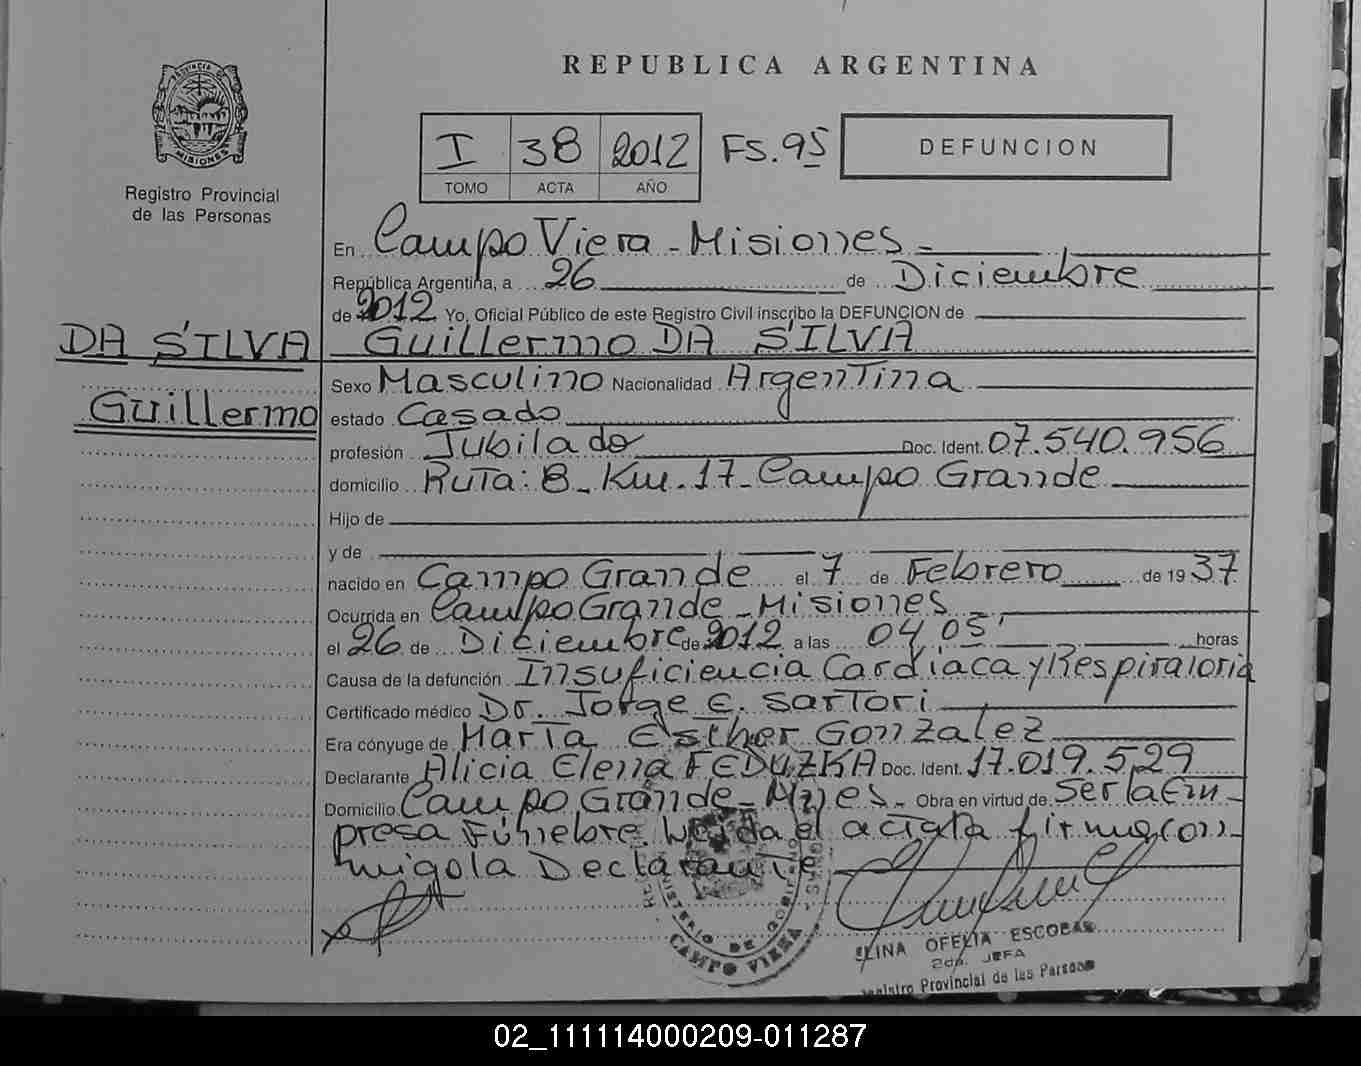 REPUBLICA ARGENTINA
PROVINCIA DE
MISIONES
Registro Provincial
de las Personas
I 38 2012 FS. 95 DEFUNCION
TOMO ACTA AÑO
En Campo Viera - Misiones -
República Argentina, a 26 de Diciembre
de 2012 Yo, Oficial Público de este Registro Civil inscribo la DEFUNCION de
DA SILVA Guillermo DA SILVA
Sexo Masculino Nacionalidad Argentina
Guillermo estado Casado
profesión Jubilado Doc. Ident. 07.540.956
domicilio Ruta: 8 - Km. 17 - Campo Grande
Hijo de
y de
nacido en Campo Grande el 7 de Febrero de 19 37
Ocurrida en Campo Grande - Misiones
el 26 de Diciembre de 2012 a las 04,05' horas
Causa de la defunción Insuficiencia Cardiaca y Respiratoria
Certificado médico Dr. Jorge E. Sartori
Era cónyuge de Maria Esther Gonzalez
Declarante Alicia Elena FEDUZKA Doc. Ident. 17.019.529
Domicilio Campo Grande - Mnes - Obra en virtud de Ser la Em-
presa Fúnebre. Leida el acta la firma con-
migo la Declarante
MINISTERIO DE GOBIERNO
CAMPO VIERA
ELINA OFELIA ESCOBAR
2da. JEFA
Registro Provincial de las Personas
02_111114000209-011287